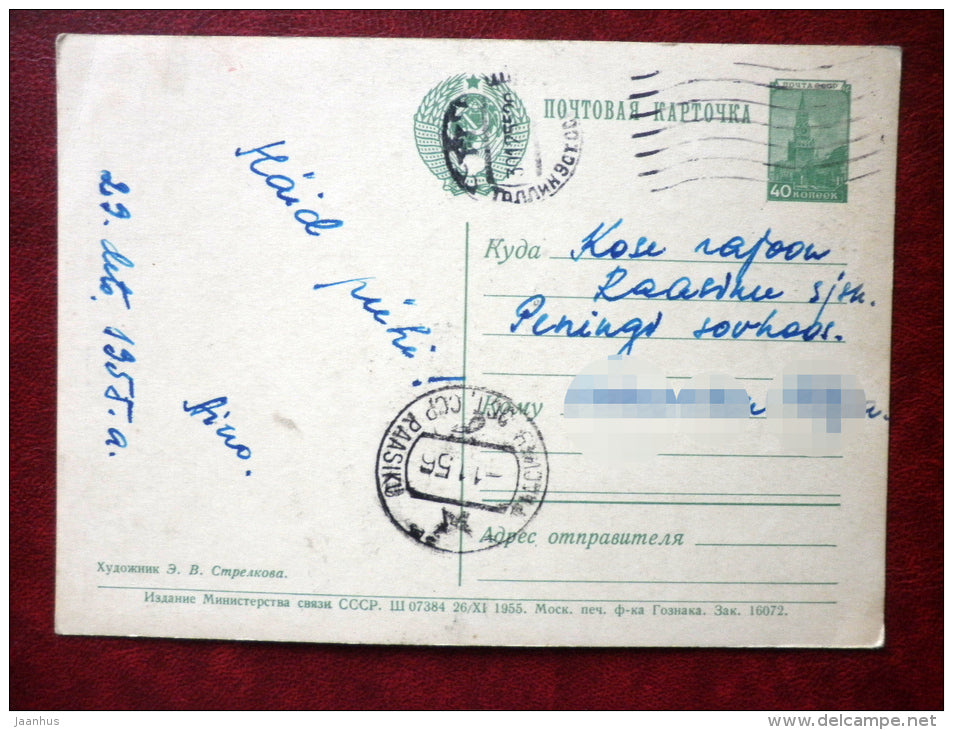 ПОЧТОВАЯ КАРТОЧКА
ПОЧТА СССР
40 КОПЕЕК
Käid
pühi!
Aino.
29. dets. 1955. a.
Куда Kose rajoon
Raasiku s/sk.
Peningi sovhoos.
Кому
РАСИКУ ЭСТ. ССР RAASIKU
-1 1 56
Адрес отправителя
Художник Э. В. Стрелкова.
Издание Министерства связи СССР. Ш 07384 26/XI 1955. Моск. печ. ф-ка Гознака. Зак. 16072.
Jaanhus
www.delcampe.net